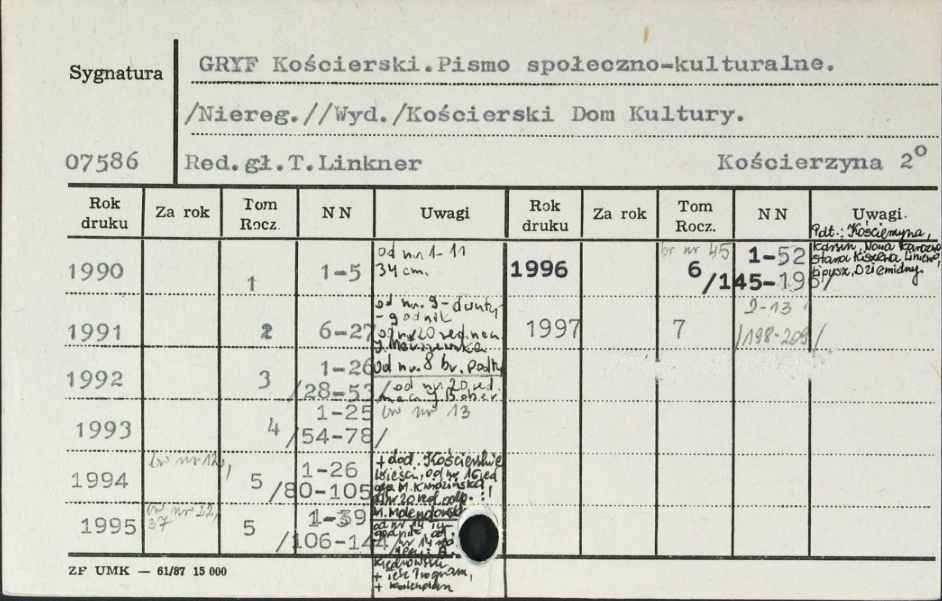 Sygnatura
GRYF Kościerski.Pismo społeczno-kulturalne.
/Niereg.//Wyd./Kościerski Dom Kultury.
07586 Red.gł.T.Linkner Kościerzyna 2°
Rok druku Za rok Tom Rocz. NN Uwagi Rok druku Za rok Tom Rocz. NN Uwagi.
Pdt.: Kościerzyna,
Karsin, Nowa Karczma
Stara Kiszewa, Liniewo,
Lipusz, Dziemiany.
1990 1 1-5 od nr 1-11
34 cm.
1996 br nr 45 6 1-52
/145-196/
1991 2 6-27 od nr. 9 - dwuty-
- godnik
od nr 20 red. nacz.
1997 7 2-13
/198-209/
1992 3 1-26
/28-53/
od nr. 8 br. podty
od nr. 20 red.
nacz. J. Bober
1993 4 1-25
/54-78/
br nr 13
1994 br nr 12, 5 1-26
/80-105
+ dod. Kościerskie
Wieści, od nr 16 red
1995 br nr 22,
37 5 1-39
/106-144
od nr 14 ty-
godnik
+ tele Program,
ZF UMK — 61/87 15 000